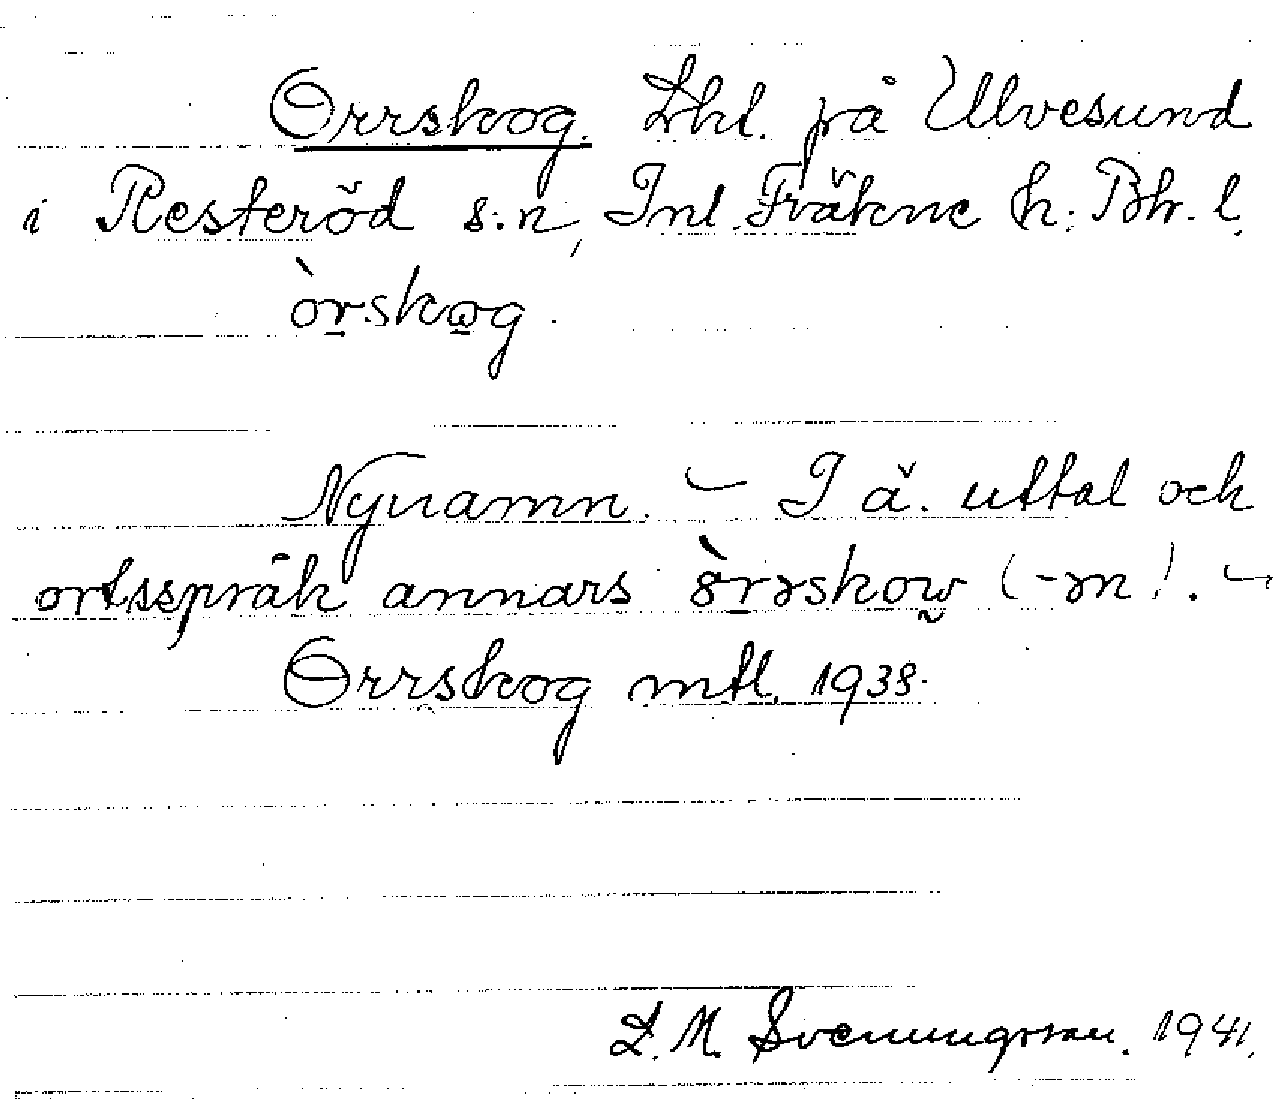 Orrskog. Lht. på Ulvesund
i Resteröd s:n, Inl. Fräkne h. Bh. l.
òrskog.
Nynamn. – I ä. uttal och
ortsspråk annars òrrəskow (-ən). –
Orrskog mtl. 1938.
L. M. Svenungsson. 1941.